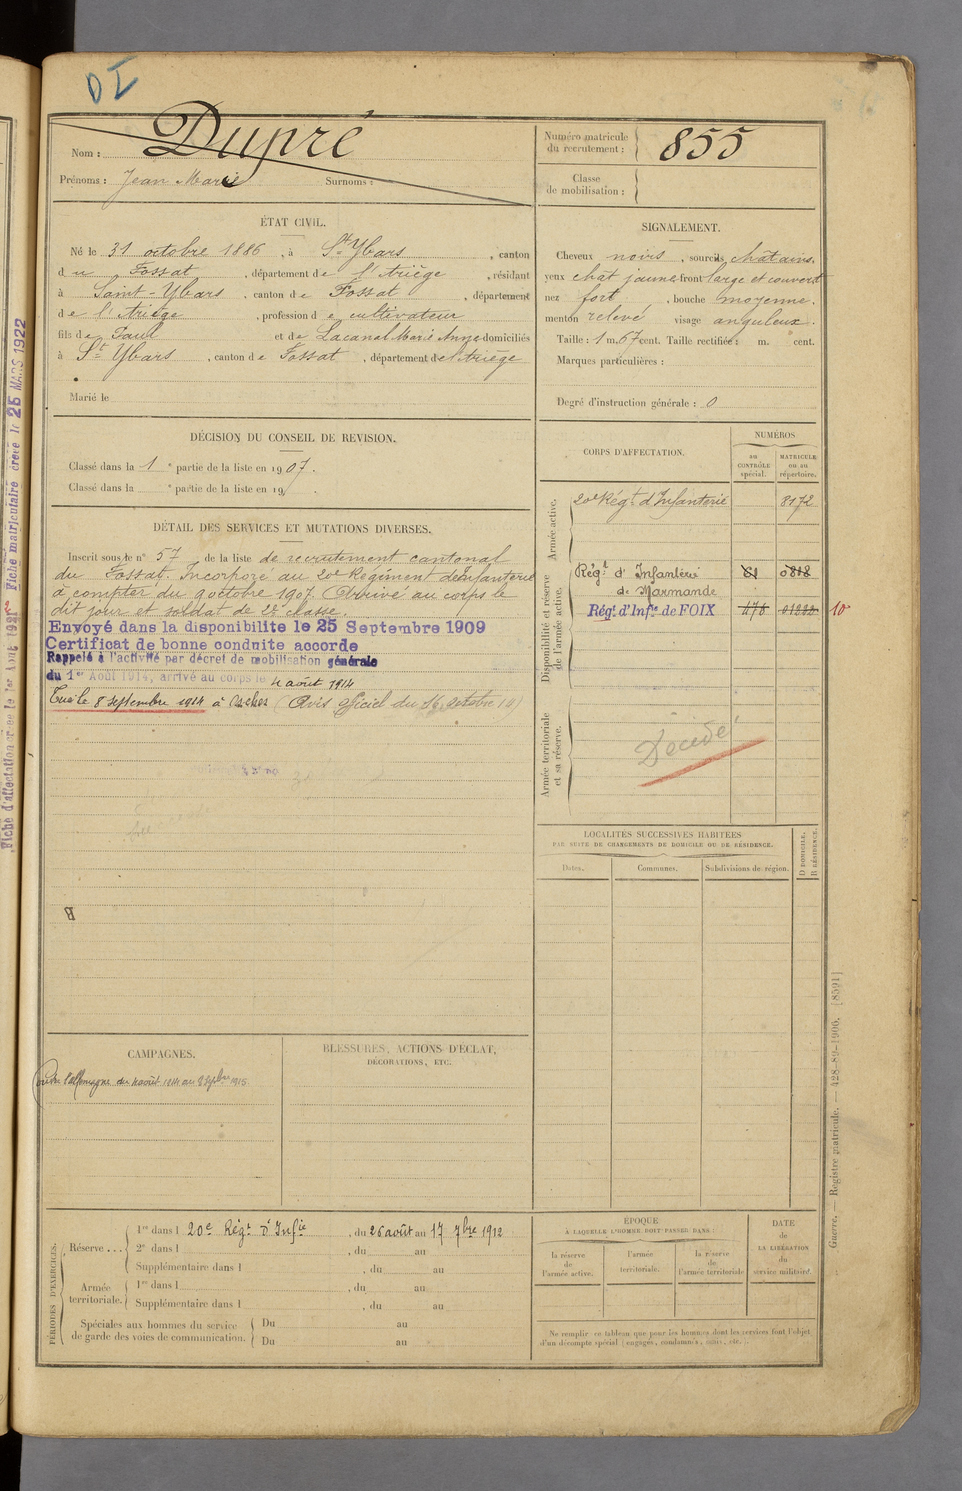 DI
Nom : Dupré
Prénoms : Jean Marie Surnoms :
Numéro matricule du recrutement : 855
Classe de mobilisation :
ÉTAT CIVIL.
Né le 31 octobre 1886, à St Ybars, canton
du Fossat, département de l'Ariège, résidant
à Saint-Ybars, canton de Fossat, département
de l'Ariège, profession de cultivateur
fils de Paul et de Lacanal Marie Anne domiciliés
à St Ybars, canton de Fossat, département de l'Ariège
Marié le
SIGNALEMENT.
Cheveux noirs, sourcils châtains.
yeux chat jaune front large et couvert
nez fort, bouche moyenne.
menton relevé visage anguleux.
Taille : 1 m. 67 cent. Taille rectifiée : m. cent.
Marques particulières :
Degré d'instruction générale : 0
DÉCISION DU CONSEIL DE REVISION.
Classé dans la 1e partie de la liste en 1907.
Classé dans la e partie de la liste en 19 .
DÉTAIL DES SERVICES ET MUTATIONS DIVERSES.
Inscrit sous le n° 57 de la liste de recrutement cantonal
du Fossat. Incorporé au 20e Régiment d'Infanterie
à compter du 9 octobre 1907. Arrivé au corps le
dit jour et soldat de 2e classe.
Envoyé dans la disponibilite le 25 Septembre 1909
Certificat de bonne conduite accorde
Rappelé à l'activité par décret de mobilisation générale
du 1er Août 1914, arrivé au corps le 4 août 1914
Tué le 8 septembre 1914 à (Avis officiel du 16 octobre
CORPS D'AFFECTATION.
NUMÉROS
au CONTRÔLE spécial.
MATRICULE ou au répertoire.
Armée active.
20e Régt d'Infanterie 8172
Disponibilité et réserve de l'armée active.
Régt d'Infanterie 61 0818
de Marmande
Régt d'Infie de FOIX 476 01222 10
Armée territoriale et sa réserve.
Décédé
LOCALITÉS SUCCESSIVES HABITÉES
PAR SUITE DE CHANGEMENTS DE DOMICILE OU DE RÉSIDENCE.
D DOMICILE. R RÉSIDENCE.
Dates. Communes. Subdivisions de région.
CAMPAGNES.
Contre l'Allemagne du 4 août 1914 au 8 Septbre 1915.
BLESSURES, ACTIONS D'ÉCLAT,
DÉCORATIONS, ETC.
PÉRIODES D'EXERCICES.
Réserve ... 1re dans l 20e Régt d'Infie, du 26 août au 17 7bre 1912
2e dans l , du au
Supplémentaire dans l , du au
Armée territoriale. 1re dans l , du au
Supplémentaire dans l , du au
Spéciales aux hommes du service
de garde des voies de communication.
Du au
Du au
ÉPOQUE
À LAQUELLE L'HOMME DOIT PASSER DANS :
la réserve de l'armée active.
l'armée territoriale.
la réserve de l'armée territoriale
DATE de LA LIBÉRATION du service militaire.
Ne remplir ce tableau que pour les hommes dont les services font l'objet
d'un décompte spécial (engagés, condamnés, omis, etc.).
Guerre. — Registre matricule. — 428-89-1906. [8591]
Fiche d'affectation créée le 1er Août 1921
Fiche matriculaire créée le 25 MARS 1922